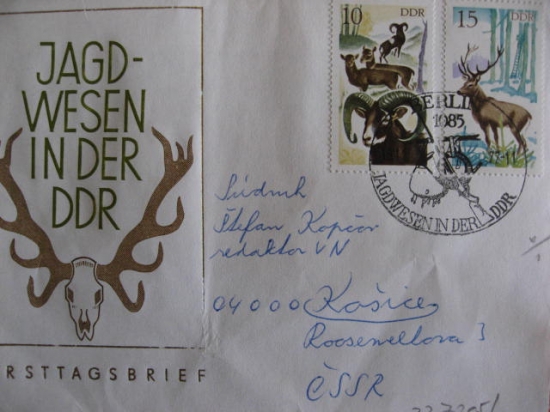 JAGD-
WESEN
IN DER
DDR
RSTTAGSBRIEF
10 DDR
15 DDR
BERLIN
1085
11
JAGDWESEN IN DER DDR
Súdruh
Štefan Kopčov
redaktor VN
04000 Košice
Rooseweltova 3
ČSSR